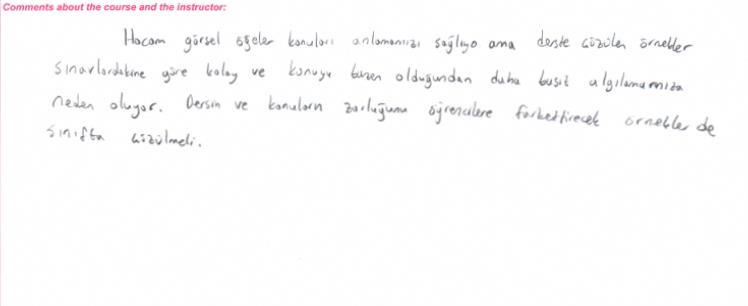 Comments about the course and the instructor:
Hocam görsel öğeler konuları anlamamızı sağlıyo ama derste çözülen örnekler
sınavlardakine göre kolay ve konuyu bazen olduğundan daha basit algılamamıza
neden oluyor. Dersin ve konuların zorluğunu öğrencilere farkettirecek örnekler de
sınıfta çözülmeli.